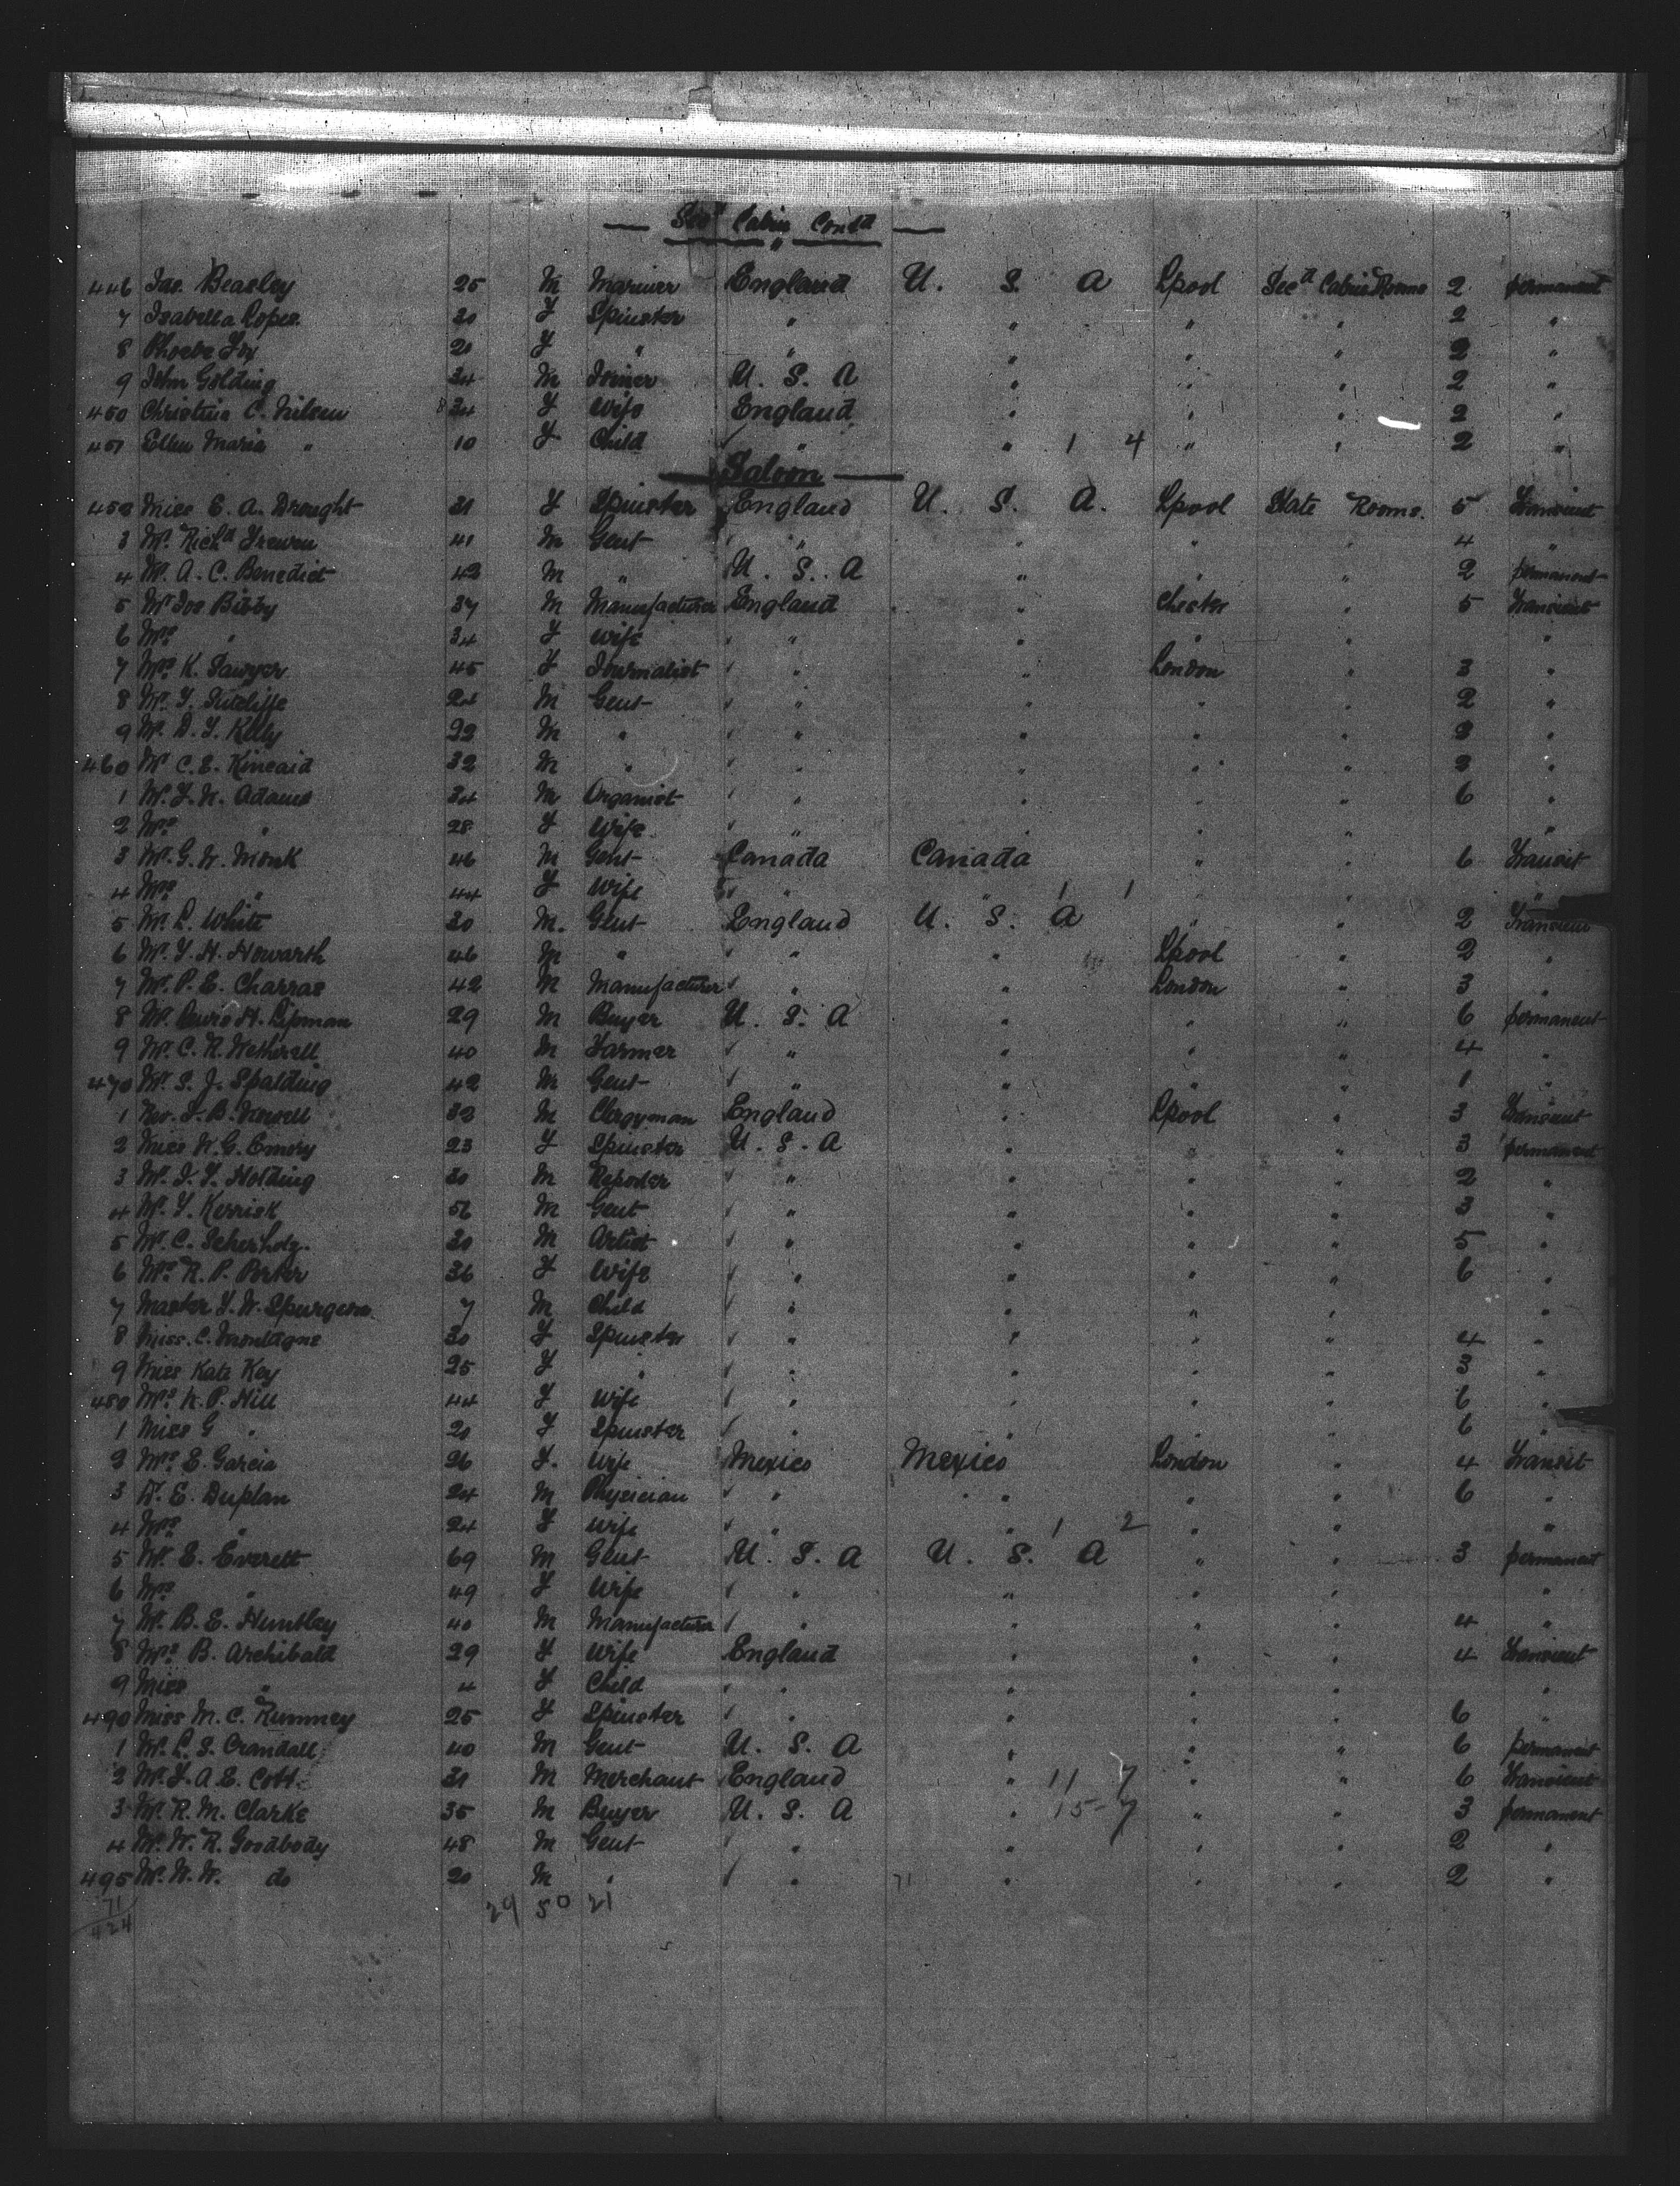 — Secd Cabin Contd —
446 Jas. Beasley 25 M Mariner England U. S. A Lpool Secd Cabin Rooms 2 permanent
7 Isabella Copes 20 F Spinster " " " " 2 "
8 Phoebe Fox 20 F " " " " " 2 "
9 John Golding 34 M Joiner U. S. A " " " 2 "
450 Christina C. Nilsen 34 F Wife England " " " 2 "
451 Ellen Maria " 10 F Child " " 1 4 " " 2 "
— Saloon —
452 Miss E. A. Drought 31 F Spinster England U. S. A. Lpool State Rooms. 5 Transient
3 Mr. Richd Frewen 41 M Gent " " " " 4 "
4 Mr. A. C. Benedict 42 M " U. S. A " " " 2 permanent
5 Mr Jos Bibby 37 M Manufacturer England " Chester " 5 Transient
6 Mrs " 34 F Wife " " " " "
7 Mrs K. Sawyer 45 F Journalist " " London " 3 "
8 Mr. F. Sutcliffe 24 M Gent " " " " 2 "
9 Mr. D. F. Kelly 22 M " " " " " 2 "
460 Mr C. E. Kincaid 32 M " " " " " 2 "
1 Mr. F. N. Adams 34 M Organist " " " " 6 "
2 Mrs " 28 F Wife " " " " "
3 Mr. G. W. Monk 46 M Gent Canada Canada " " 6 Transit
4 Mrs " 44 F Wife " " 1 1 " " "
5 Mr. L. White 30 M. Gent England U. S. A " " 2 Transient
6 Mr. F. H. Howarth 46 M " " " Lpool " 2 "
7 Mr. P. E. Charras 42 M Manufacturer " " London " 3 "
8 Mr. Lewis H. Lipman 29 M Buyer U. S. A " " " 6 permanent
9 Mr. C. R. Wetherell 40 M Farmer " " " " 4 "
470 Mr. S. J. Spalding 42 M Gent " " " " 1 "
1 Rev. 32 M Clergyman England " Lpool " 3 Transient
2 Miss N. G. Emory 23 F Spinster U. S. A " " " 3 permanent
3 Mr. J. F. Holding 30 M Reporter " " " " 2 "
4 Mr. F. Kerrick 56 M Gent " " " " 3 "
5 Mr. C. 30 M Artist " " " " 5 "
6 Mrs R. P. Porter 36 F Wife " " " " 6 "
7 Master F. W. Spurgeon 7 M Child " " " " "
8 Miss. C. Montagne 30 F Spinster " " " " 4 "
9 Miss Kate Key 25 F " " " " " 3 "
480 Mrs N. P. Hill 44 F Wife " " " " 6 "
1 Miss G " 20 F Spinster " " " " 6 "
2 Mrs E. Garcia 26 F. Wife Mexico Mexico London " 4 Transit
3 Dr. E. Duplan 24 M Physician " " " " 6 "
4 Mrs " 24 F Wife " " 1 2 " " "
5 Mr. E. Everett 69 M Gent U. S. A U. S. A " " 3 permanent
6 Mrs " 49 F Wife " " " " "
7 Mr. B. E. Huntley 40 M Manufacturer " " " " 4 "
8 Mrs B. Archibald 29 F Wife England " " " 4 Transient
9 Miss " 4 F Child " " " " "
490 Miss M. C. Rumney 25 F Spinster " " " " 6 "
1 Mr. L. S. Crandall 40 M Gent U. S. A " " " 6 permanent
2 Mr. F. A. E. Cott 31 M Merchant England " 11 7 " " 6 Transient
3 Mr. R. M. Clarke 35 M Buyer U. S. A " 15 7 " " 3 permanent
4 Mr. W. R. Goodbody 48 M Gent " " " " 2 "
495 Mr. W. W. do 20 M " " 71 " " " 2 "
71 29 50 21
424